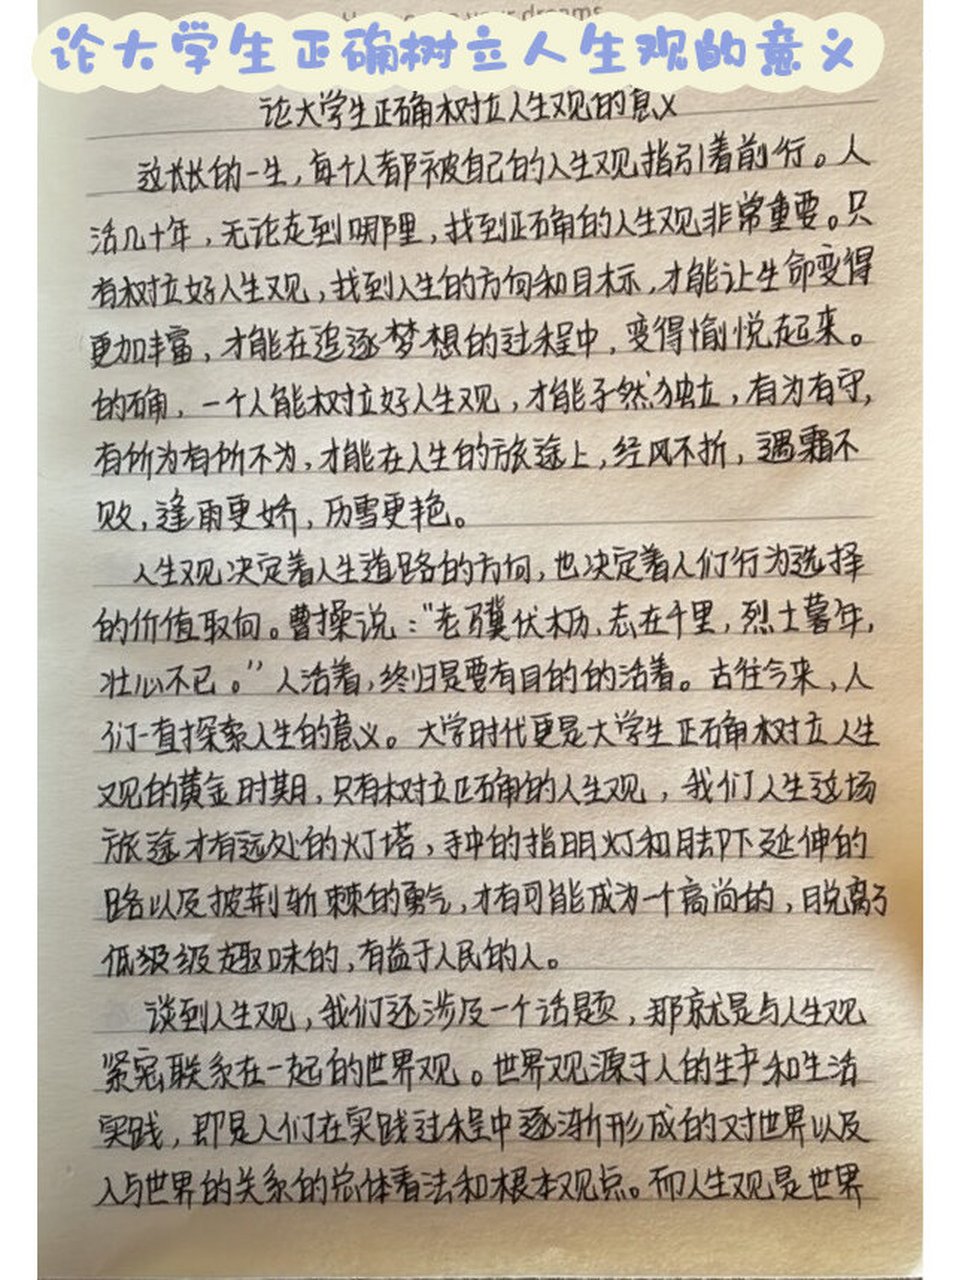 your dreams
论大学生正确树立人生观的意义
论大学生正确树立人生观的意义
这长长的一生，每个人都被自己的人生观指引着前行。人
活几十年，无论走到哪里，找到正确的人生观非常重要。只
有树立好人生观，找到人生的方向和目标，才能让生命变得
更加丰富，才能在追逐梦想的过程中，变得愉悦起来。
的确，一个人能树立好人生观，才能孑然独立，有为有守，
有所为有所不为，才能在人生的旅途上，经风不折，遇霜不
败，逢雨更娇，历雪更艳。
人生观决定着人生道路的方向，也决定着人们行为选择
的价值取向。曹操说：“老骥伏枥、志在千里，烈士暮年，
壮心不已。”人活着，终归是要有目的的活着。古往今来，人
们一直探索人生的意义。大学时代更是大学生正确树立人生
观的黄金时期，只有树立正确的人生观，我们人生这场
旅途才有远处的灯塔，手中的指明灯和脚下延伸的
路以及披荆斩棘的勇气，才有可能成为一个高尚的，脱离了
低级级趣味的，有益于人民的人。
谈到人生观，我们还涉及一个话题，那就是与人生观
紧密联系在一起的世界观。世界观源于人的生产和生活
实践，即是人们在实践过程中逐渐形成的对世界以及
人与世界的关系的总体看法和根本观点。而人生观是世界